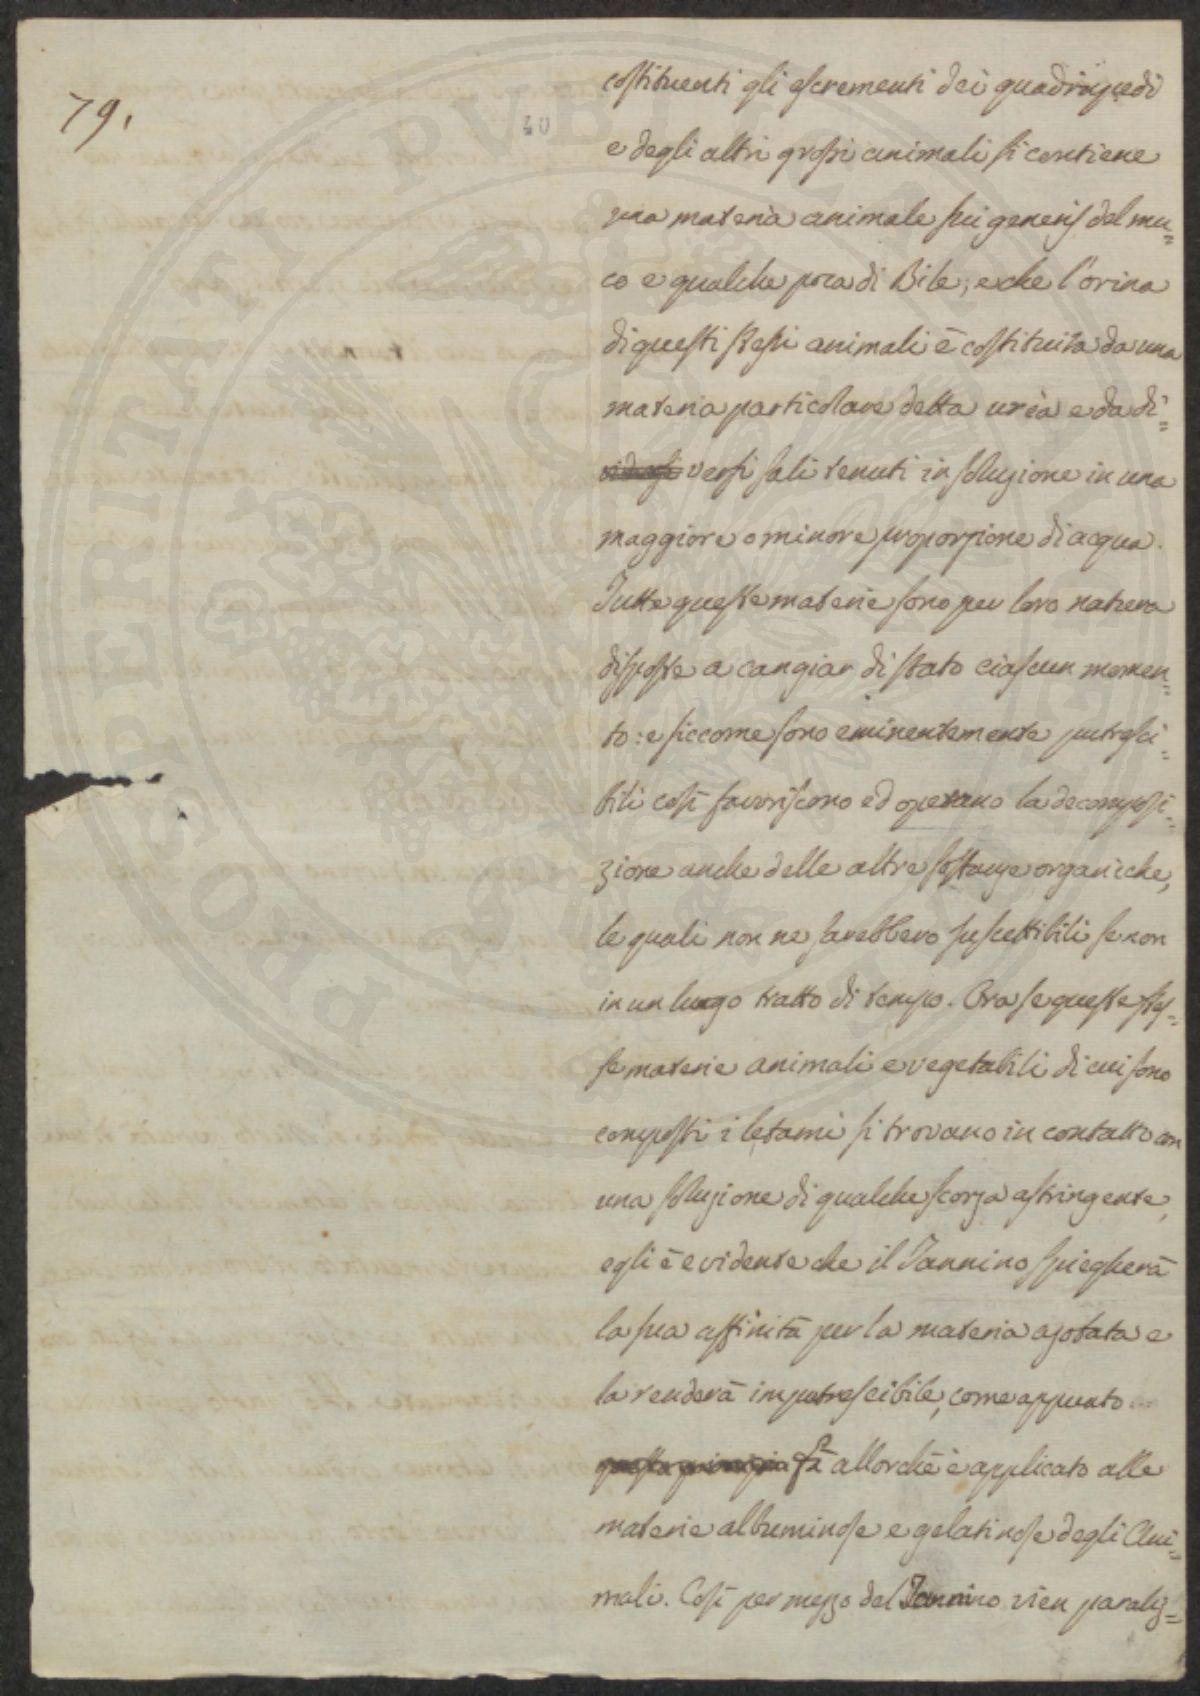 79.
40
costituenti gli escrementi dei quadrupedi
e degli altri grossi animali si contiene
una materia animale sui generis del mu=
co e qualche poca di Bile; e che l'orina
di questi stessi animali è costituita da una
materia particolare detta urèa e da di=
versi sali tenuti in soluzione in una
maggiore o minore proporzione di acqua.
Tutte queste materie sono per loro natura
disposte a cangiar di stato ciascun momen=
to: e siccome sono eminentemente putresci=
bili così favoriscono ed operano la decomposi=
zione anche delle altre sostanze organiche,
le quali non ne sarebbero suscettibili se non
in un lungo tratto di tempo. Ora se queste stes=
se materie animali e vegetabili di cui sono
composti i letami si trovano in contatto con
una soluzione di qualche scorza astringente,
egli è evidente che il Tannino spiegherà
la sua affinità per la materia azotata e
la renderà imputrescibile, come appunto
fà allorchè è applicato alle
materie albuminose e gelatinose degli Ani=
mali. Così per mezzo del Tannino vien paraliz=
PROSPERITATI PVBLICAE